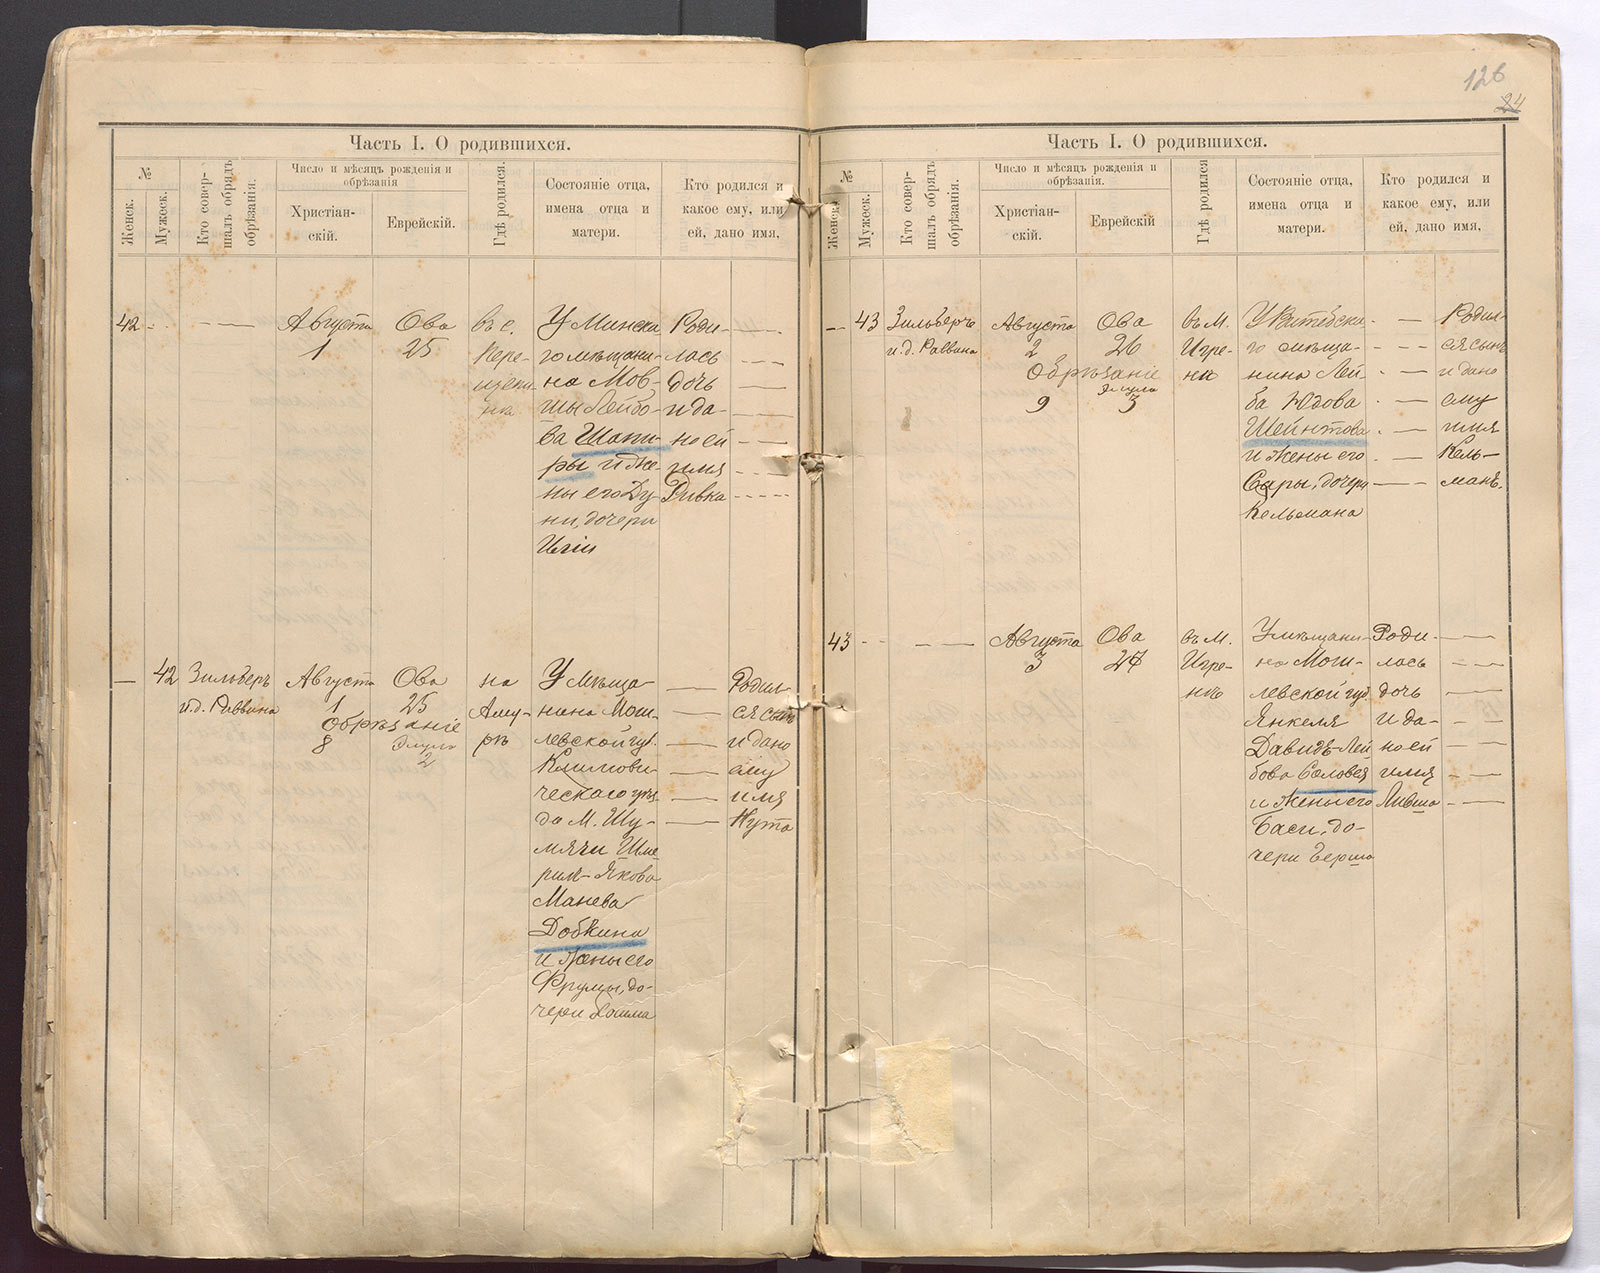 126
24
Часть I. О родившихся.
№
Женск.
Мужеск.
Кто совер-
шалъ обрядъ
обрѣзанія.
Число и мѣсяцъ рожденія и
обрѣзанія
Христіан-
скій.
Еврейскій.
Гдѣ родился.
Состояніе отца,
имена отца и
матери.
Кто родился и
какое ему, или
ей, дано имя,
42
Августа
1
Ова
25
въ с.
У Минска
го мѣщани-
на Мов-
шы Лейбо-
ва Шапи-
ры и же-
ны его Ду
ни, дочери
Роди-
лась
дочь
и да-
но ей
имя
Ривка
42
Зильберъ
и.д. Раввина
Августа
1
Ова
25
Обрѣзаніе
8
Элула
2
на
Аму-
рѣ
У мѣща-
нина Мог-
левской губ.
Климови-
ческаго уѣз-
да М. Шу-
мячи Шме-
рил-Якова
Манева
Добкина
и жены его
Фрумы, до-
чери
Родил-
ся сынъ
и дано
ему
имя
Нута
Часть I. О родившихся.
№
Женск.
Мужеск.
Кто совер-
шалъ обрядъ
обрѣзанія.
Число и мѣсяцъ рожденія и
обрѣзанія.
Христіан-
скій.
Еврейскій
Гдѣ родился
Состояніе отца,
имена отца и
матери.
Кто родился и
какое ему, или
ей, дано имя,
43
Зильберъ
и.д. Раввина
Августа
2
Ова
26
Обрѣзаніе
Элула
9
3
въ М.
Игре-
ни
У Витебска-
го мѣща-
нина Лей-
ба Юдова
Шейнтова
и жены его
Сары, дочери
Кельмана
Родил-
ся сынъ
и дано
ему
имя
Кель-
манъ.
43
Августа
3
Ова
27
въ М.
Игре-
нѣ
У мѣщани-
на Моги-
левской губ.
Янкеля
Давидъ-Лей
бова Соловея
и жены его
Баси, до-
чери Берша
Роди-
лась
дочь
и да-
но ей
имя
Ливша